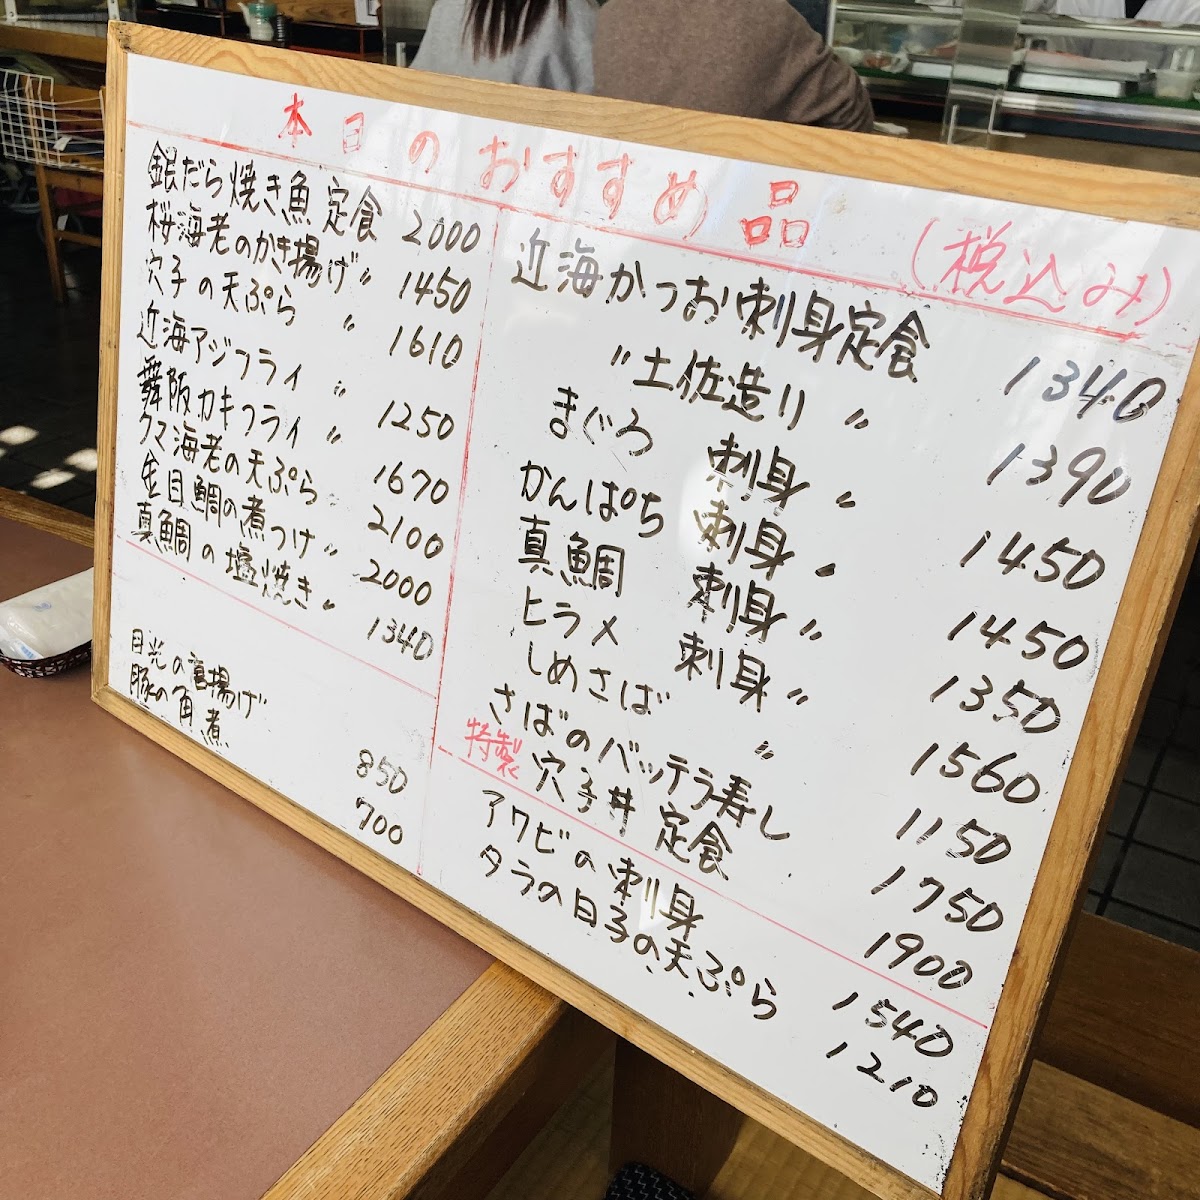 本日のおすすめ品 (税込み)
銀だら焼き魚定食 2000
桜海老のかき揚げ 〃 1450
穴子の天ぷら 〃 1610
近海アジフライ 〃 1250
舞阪カキフライ 〃 1670
クマ海老の天ぷら 〃 2100
金目鯛の煮つけ 〃 2000
真鯛の塩焼き 〃 1340
目光の唐揚げ 850
豚の角煮 700
近海かつお刺身定食 1340
〃 土佐造り 〃 1390
まぐろ 刺身 〃 1450
かんぱち 刺身 〃 1450
真鯛 刺身 〃 1350
ヒラメ 刺身 〃 1560
しめさば 〃 1150
さばのバッテラ寿し 1750
特製 穴子丼 定食 1900
アワビの刺身 1540
タラの白子の天ぷら 1210